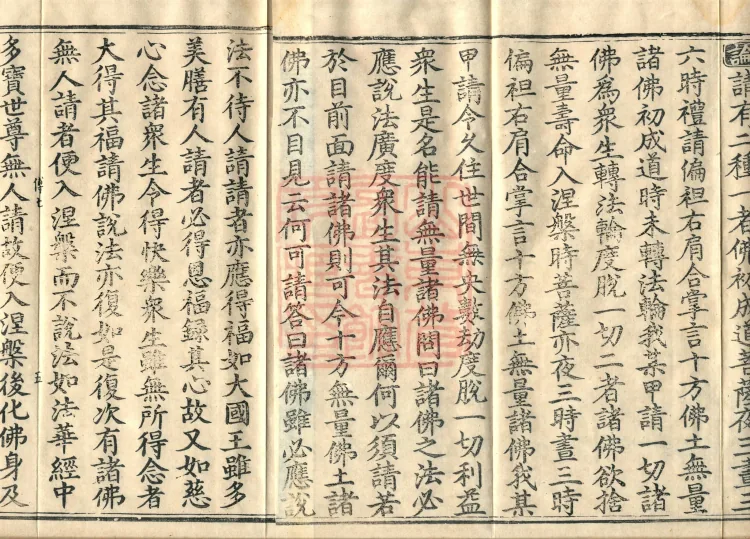 論請有二種一者佛初成道菩薩夜三晝三
六時禮請偏袒右肩合掌言十方佛土無量
諸佛初成道時未轉法輪我某甲請一切諸
佛爲衆生轉法輪度脫一切二者諸佛欲捨
無量壽命入涅槃時菩薩亦夜三時晝三時
偏袒右肩合掌言十方佛土無量諸佛我某
甲請令久住世間無央數劫度脫一切利益
衆生是名能請無量諸佛問曰諸佛之法必
應說法廣度衆生其法自應爾何以須請若
於目前面請諸佛則可今十方無量佛土諸
佛亦不目見云何可請答曰諸佛雖必應說
法不待人請請者亦應得福如大國王雖多
美膳有人請者必得恩福錄其心故又如慈
心念諸衆生令得快樂衆生雖無所得念者
大得其福請佛說法亦復如是復次有諸佛
無人請者便入涅槃而不說法如法華經中
傳七 五
多寶世尊無人請故便入涅槃後化佛身及